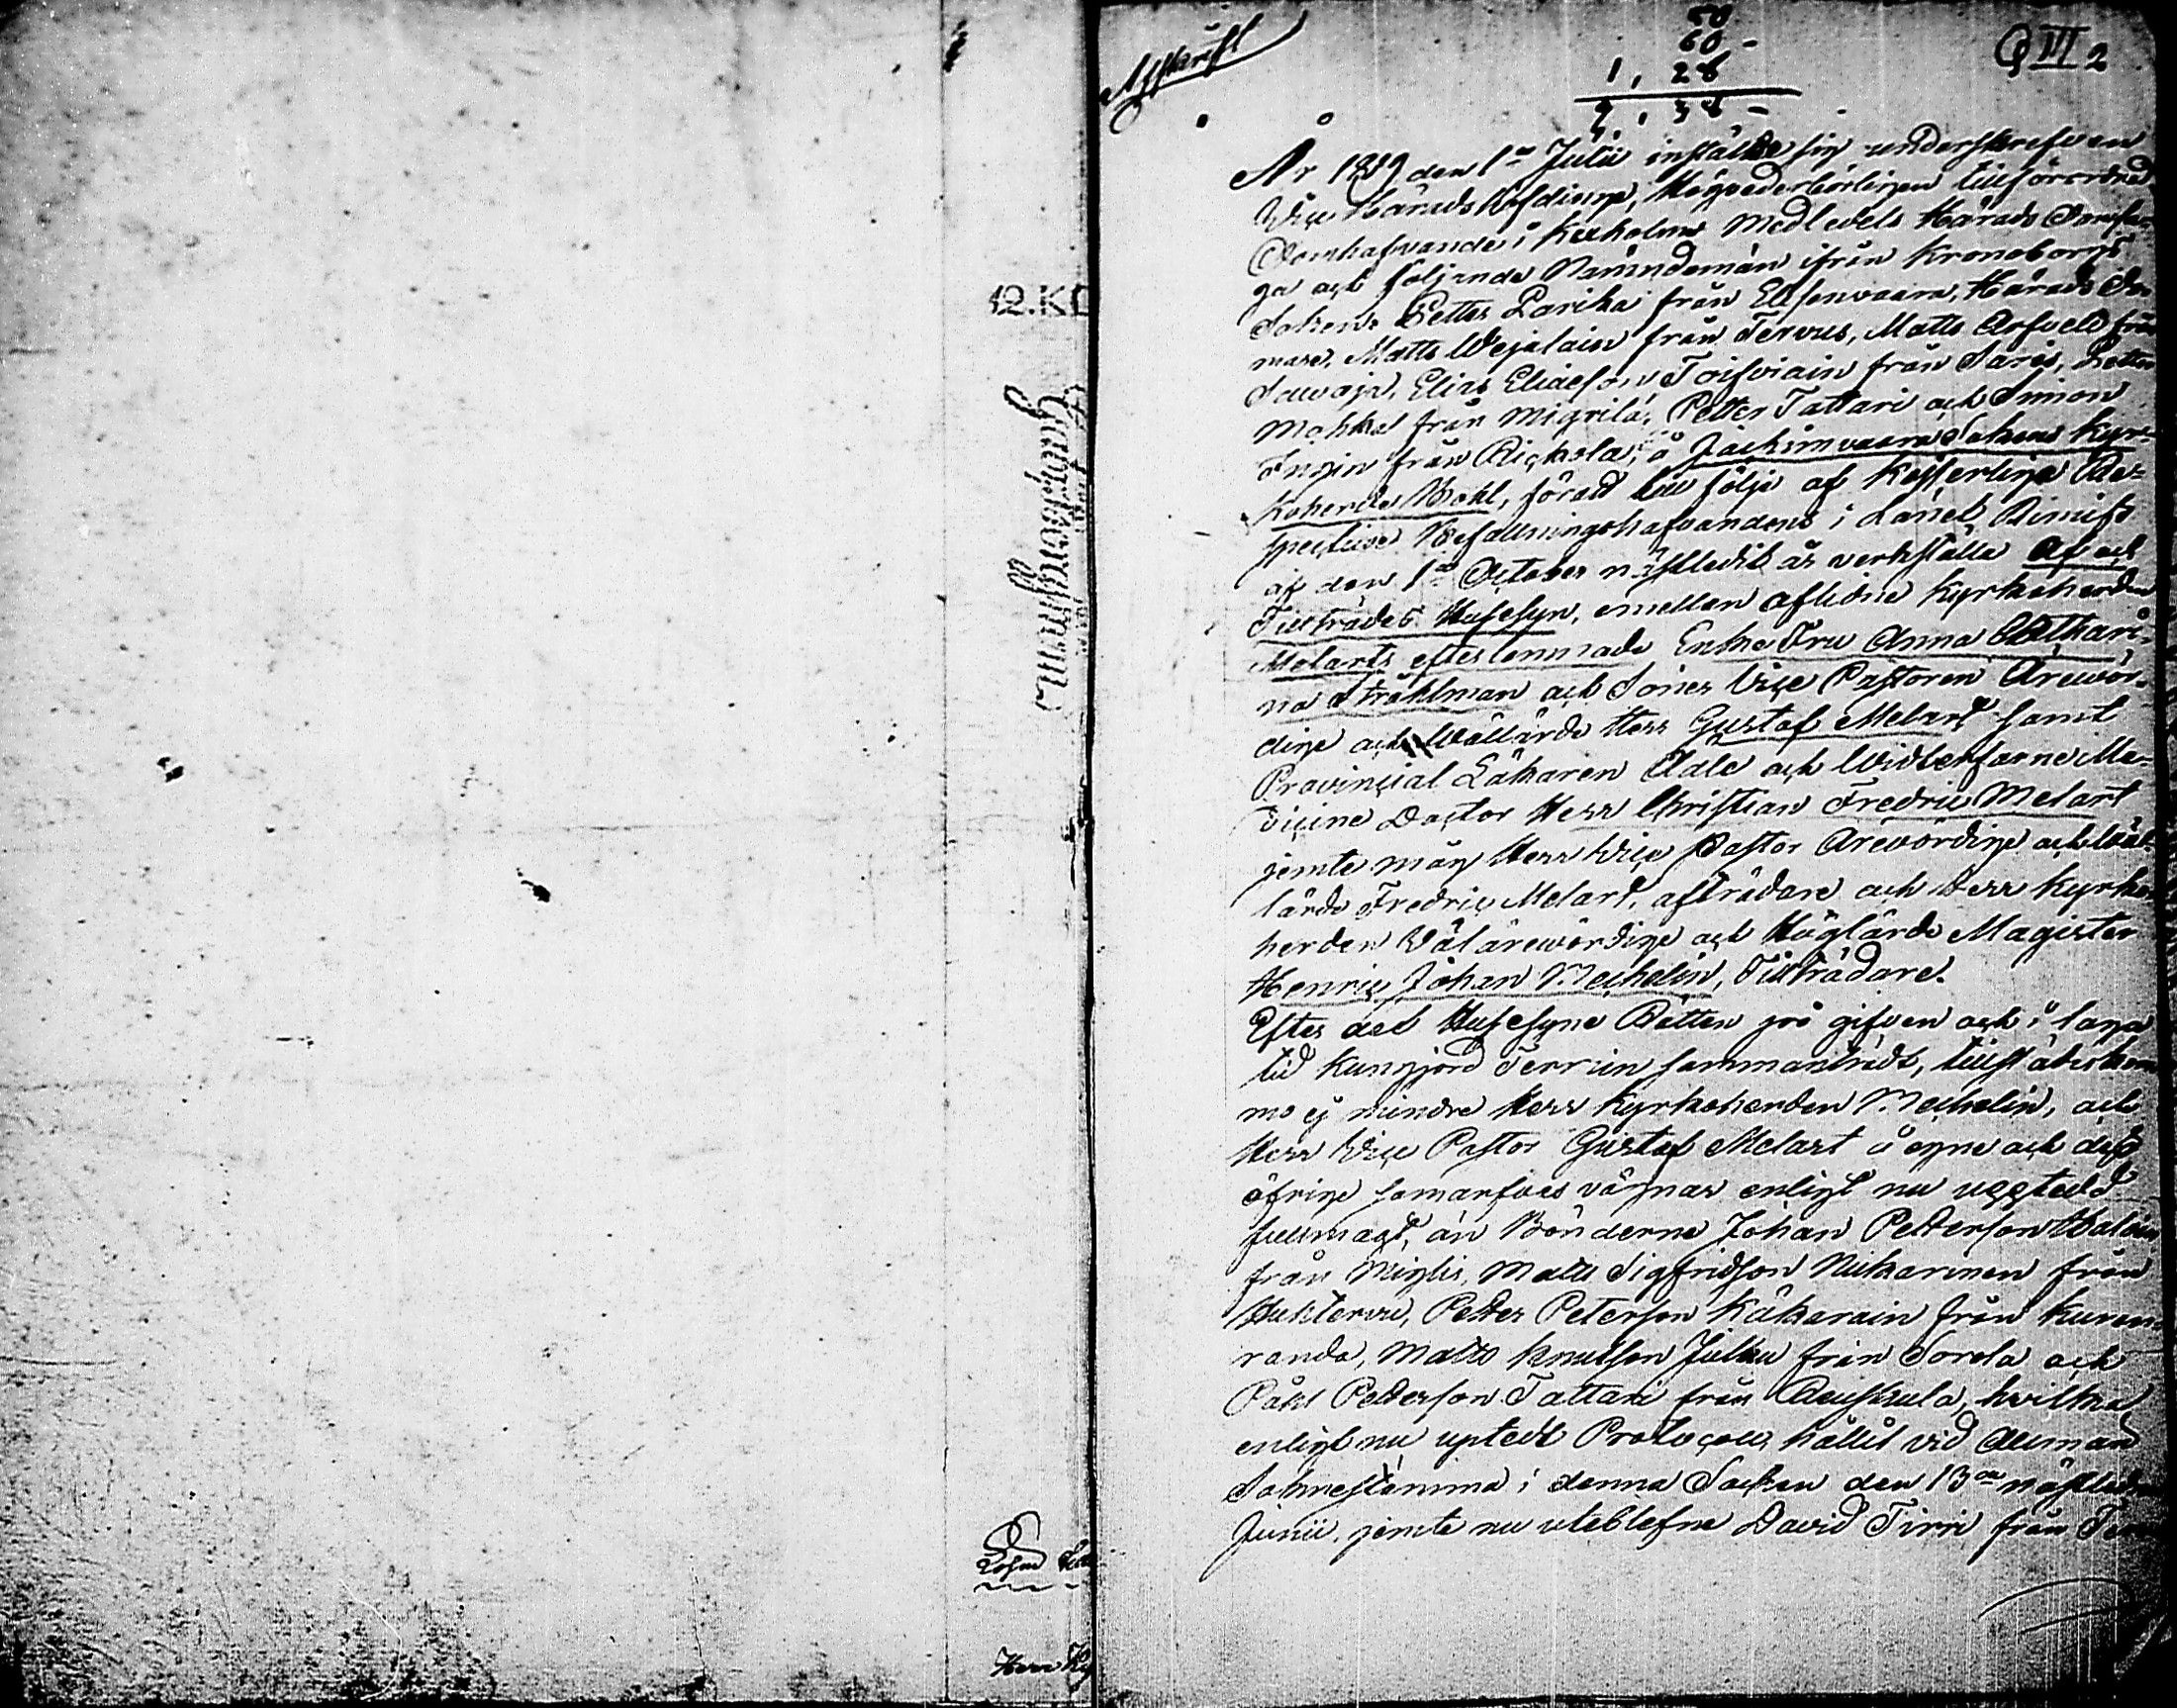 12.KD
Afskrift
50
60 -
1, 28
2, 38 -
Q III 2
År 1829 den 1sta Julii instälde sig underskrefven
Vice Häradshöfdinge, Högvederbörligen tillförordnad
Domhafvande i Kexholms Medledels Härads Domsa-
ga och följande Nämndemän ifrån Kronoborgs
Sokn: Petter Parikka från Elisenvaara, Härads Do-
mare, Matts Wejalain från Tervus, Matts Arfveld från
Sawoja, Elias Eliaeson Toifviain från Saris, Petter
Mohkel från Migrilä, Petter Tattari och Simon
Ingin från Rickola, å Jackimvaara Sokens Kyr-
koherde Bohl, för att till följe af Kejserlige Re-
spective Befallningshafvandens i Länet Remiss
af den 1sta October nästledit år verkställa Af och
Tillträdes Husesyn, emellan aflidne Kyrkoherden
Melarts efterlemnade Enka Fru Anna Cathari-
na Stråhlman och Söner Vice Pastoren Ärewör-
dige och Wällärde Herr Gustaf Melart samt
Provincial Läkaren Ädle och Widterfarne Me-
dicine Doctor Herr Christian Fredric Melart
jemte måg Herr Vice Pastor Ärewördige och Wäl-
lärde Fredric Melart, afträdare och Herr Kyrko-
herden Wälärewördige och Höglärde Magister
Henric Johan Mechelin, Tillträdare.
Efter det Husesyne Rätten på gifven och i laga
tid kungjord Termin sammanträdt, tillstädeskom
mo ej mindre Herr Kyrkoherden Mechelin, och
Herr Vice Pastor Gustaf Melart å egne och dess
öfrige samarfves vägnar enligt nu uppteedd
fullmagt, än Bönderne Johan Petterson
från Miglis, Matts Sigfridson Nukarinen från
Huhtervu, Petter Peterson Käkerain från Kuren-
randa, Matts Knutson Julku från Sorola och
Påhl Petterson Tattari från Reuskula, hvilka
enligt nu uptedt Protocoll, hållit vid Allmän
Soknestämma i denna Socken den 13de nästledne
Junii, jemte nu uteblefne David Tirri från
Herr